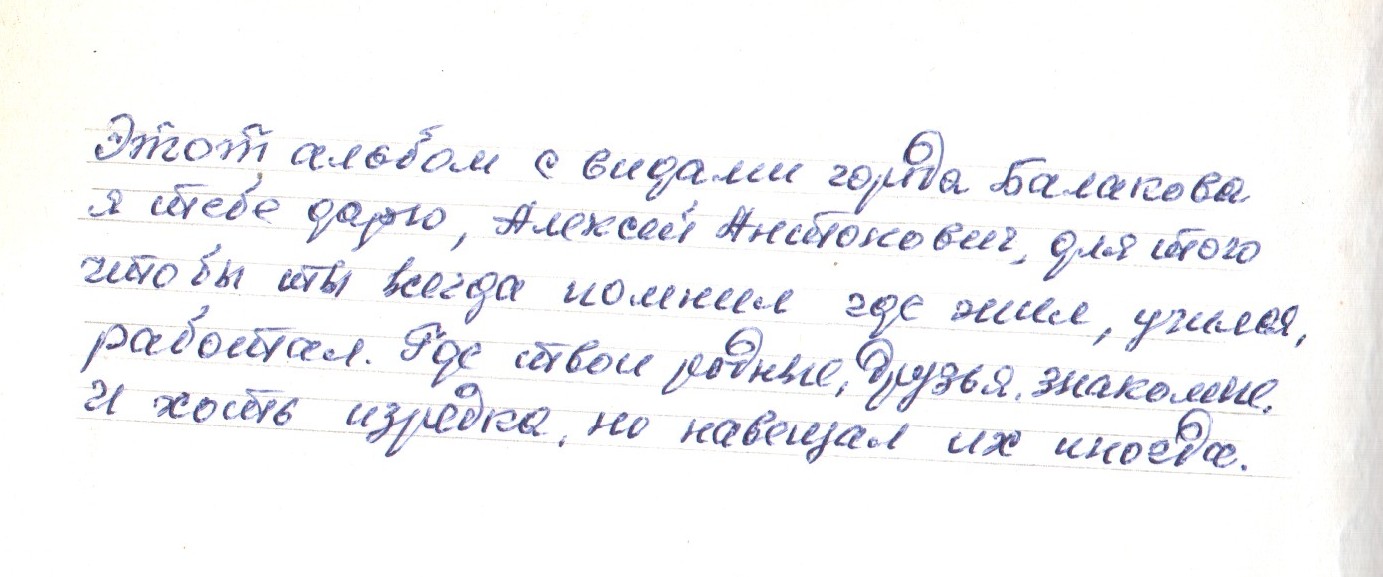 Этот альбом с видами города Балакова
я тебе дарю, Алексей Антонович, для того
чтобы ты всегда помнил где жил, учился,
работал. Где твои родные, друзья, знакомые.
И хоть изредка, но навещал их иногда.